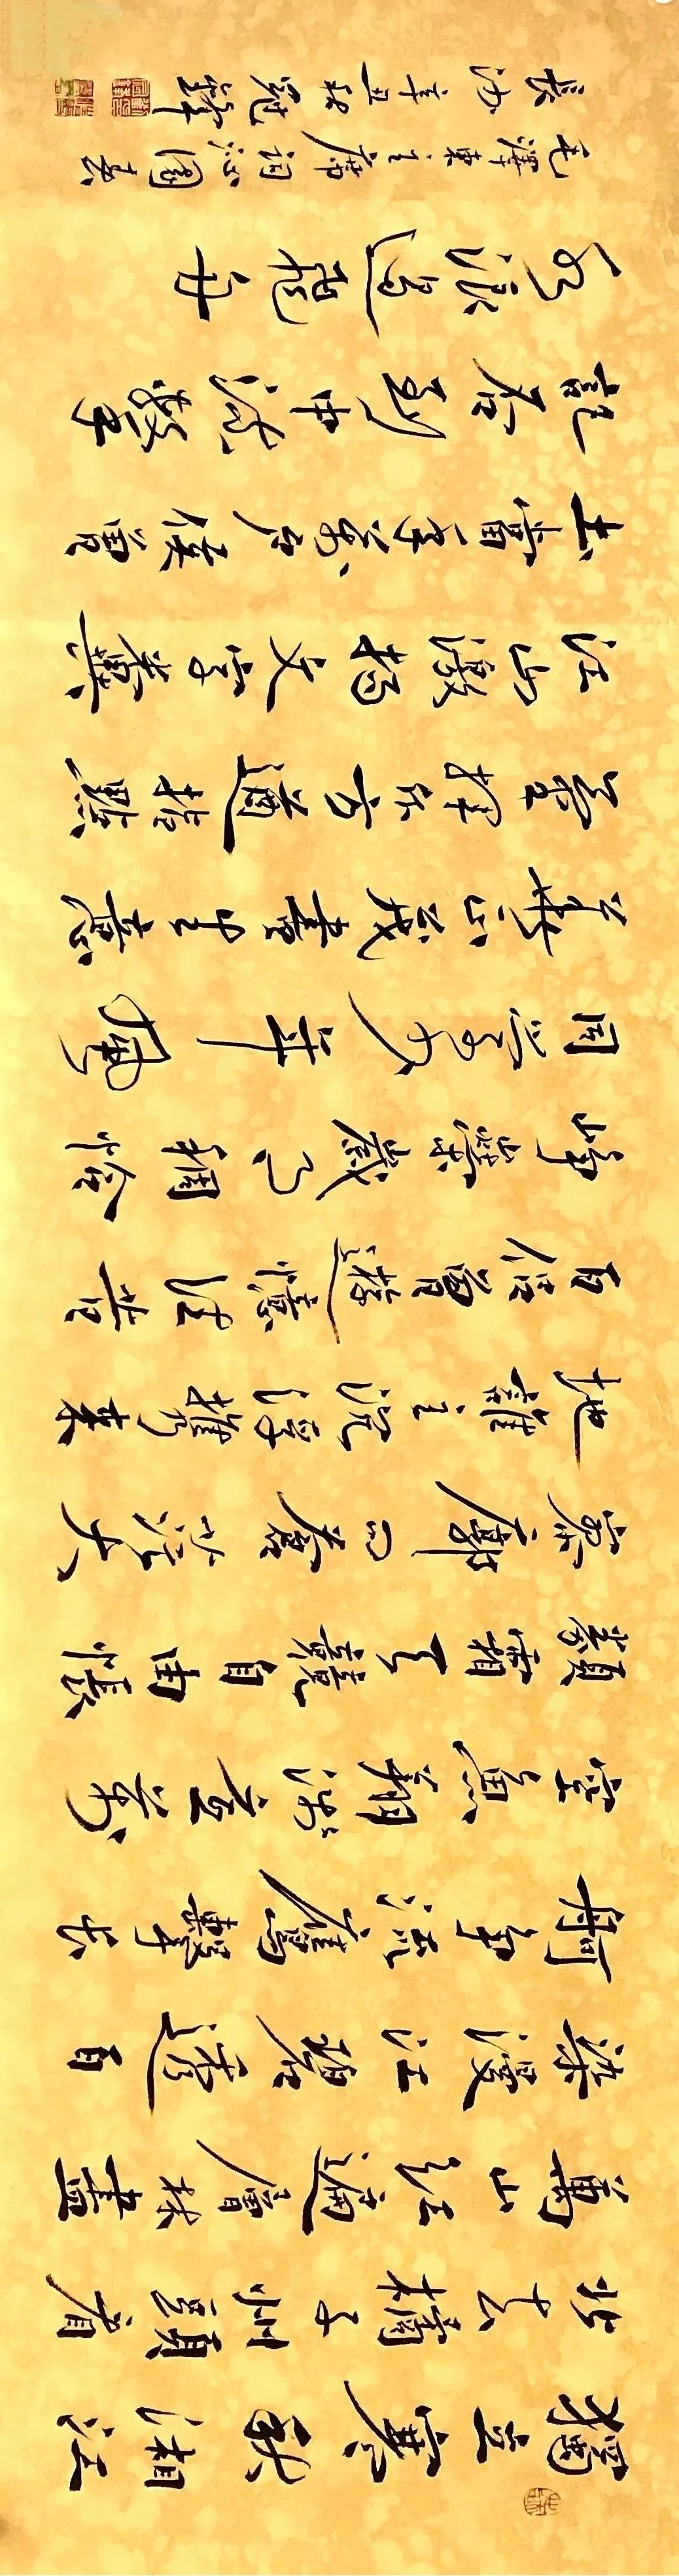 獨立寒秋湘江
北去橘子州頭看
萬山紅遍層林盡
染漫江碧透百
舸争流鷹擊长
空魚翔淺底萬
類霜天競自由悵
寥廓问蒼茫大
地誰主沉浮攜来
百侣曾遊憶往昔
峥嶸歲月稠恰
同学少年風
華正茂書生意
氣揮斥方遒指點
江山激揚文字糞
土當年萬户侯曾
記否到中流擊
水浪遏飛舟
毛澤東主席詞沁園春
長沙辛丑秋冠鋒